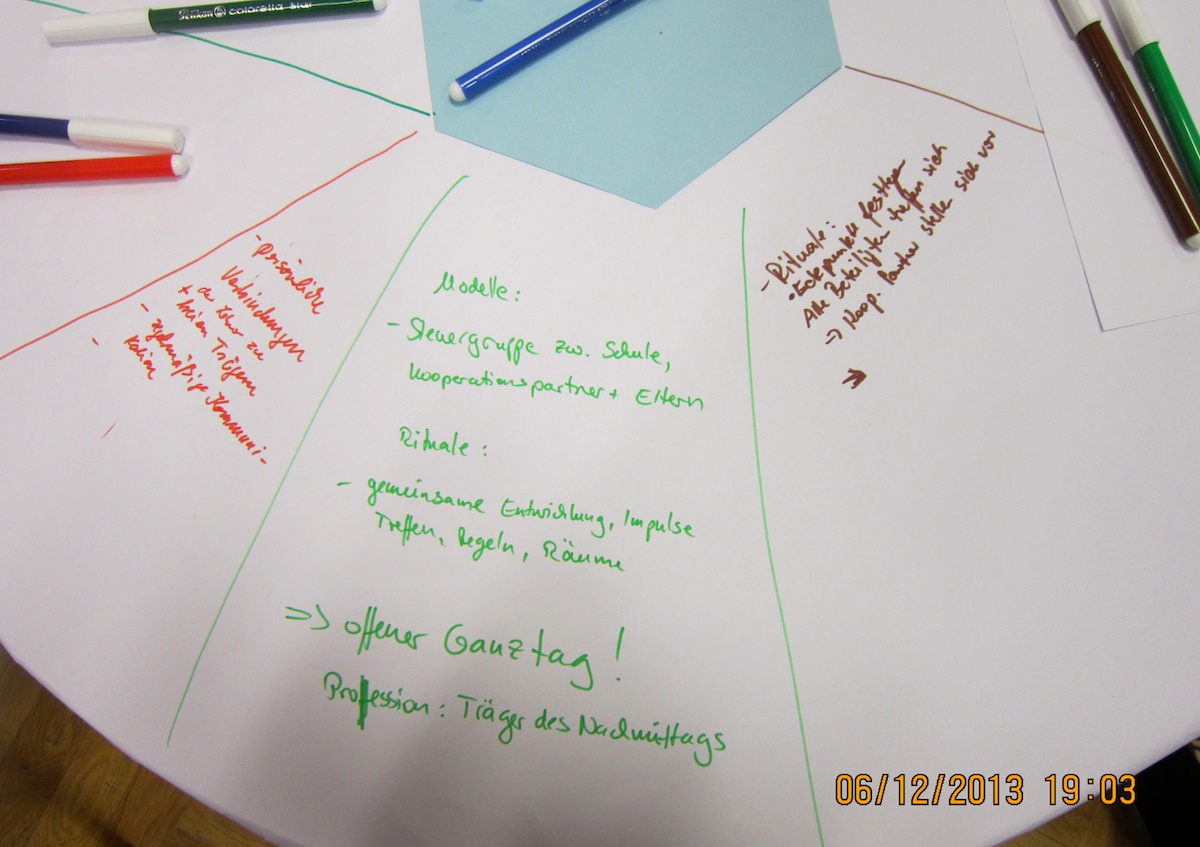 Pelikan colorella star
- persönliche
Verbindungen
der Lehrer zu
+ freien Trägern
- regelmäßige Kommuni-
kation
-
Modelle:
- Steuergruppe zw. Schule,
Kooperationspartner + Eltern
Rituale:
- gemeinsame Entwicklung, Impulse
Treffen, Regeln, Räume
=> offener Ganztag!
Profession: Träger des Nachmittags
- Rituale:
• festlegen
Alle Beteiligten treffen sich
-> Koop. Partner stellen sich vor
06/12/2013 19:03